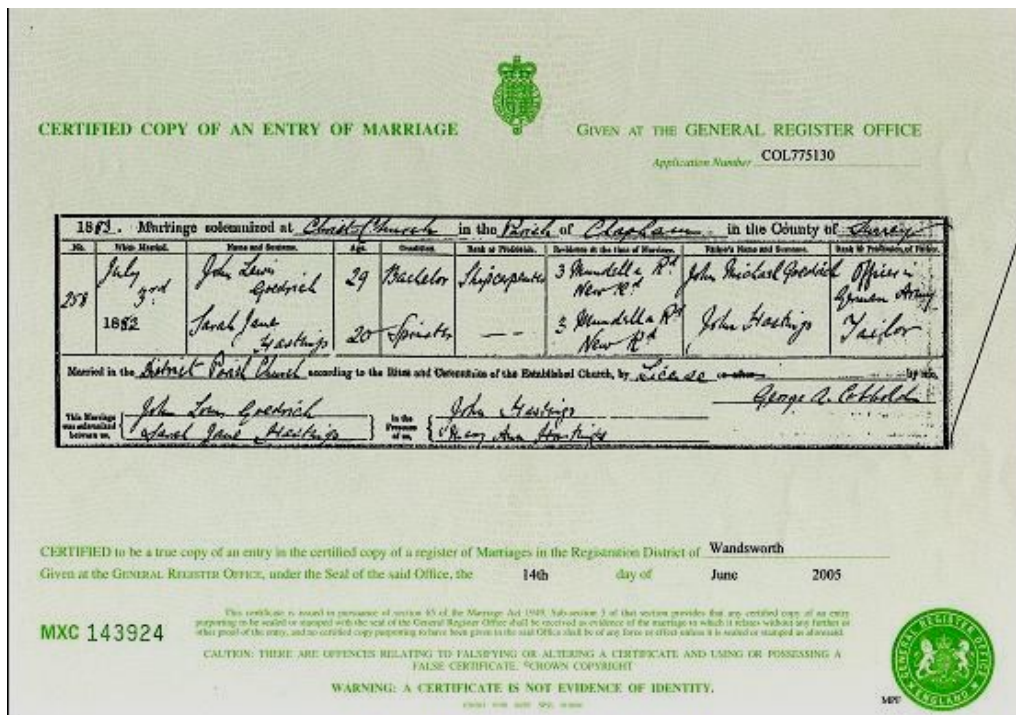 CERTIFIED COPY OF AN ENTRY OF MARRIAGE
GIVEN AT THE GENERAL REGISTER OFFICE
Application Number COL775130
1883. Marriage solemnized at Christ Church in the Parish of Clapham in the County of Surrey
No. When Married. Name and Surname. Age. Condition. Rank or Profession. Residence at the time of Marriage. Father's Name and Surname. Rank or Profession of Father.
258 July 3rd 1883 John Lewis Goedrich 29 Bachelor Shipcarpenter 3 Mundella Rd New Rd John Michael Goedrich Officer in German Army
Sarah Jane Hastings 20 Spinster — 3 Mundella Rd New Rd John Hastings Tailor
Married in the District Parish Church according to the Rites and Ceremonies of the Established Church, by License or after by me,
George A. Cobbold
This Marriage was solemnized between us, John Louis Goedrich
Sarah Jane Hastings
in the Presence of us, John Hastings
Mary Ann Hastings
CERTIFIED to be a true copy of an entry in the certified copy of a register of Marriages in the Registration District of Wandsworth
Given at the GENERAL REGISTER OFFICE, under the Seal of the said Office, the 14th day of June 2005
MXC 143924
This certificate is issued in pursuance of section 65 of the Marriage Act 1949. Sub-section 3 of that section provides that any certified copy of an entry
purporting to be sealed or stamped with the seal of the General Register Office shall be received as evidence of the marriage to which it relates without any further or
other proof of the entry, and no certified copy purporting to have been given in the said Office shall be of any force or effect unless it is sealed or stamped as aforesaid.
CAUTION: THERE ARE OFFENCES RELATING TO FALSIFYING OR ALTERING A CERTIFICATE AND USING OR POSSESSING A
FALSE CERTIFICATE. ©CROWN COPYRIGHT
WARNING: A CERTIFICATE IS NOT EVIDENCE OF IDENTITY.
GENERAL REGISTER OFFICE
ENGLAND